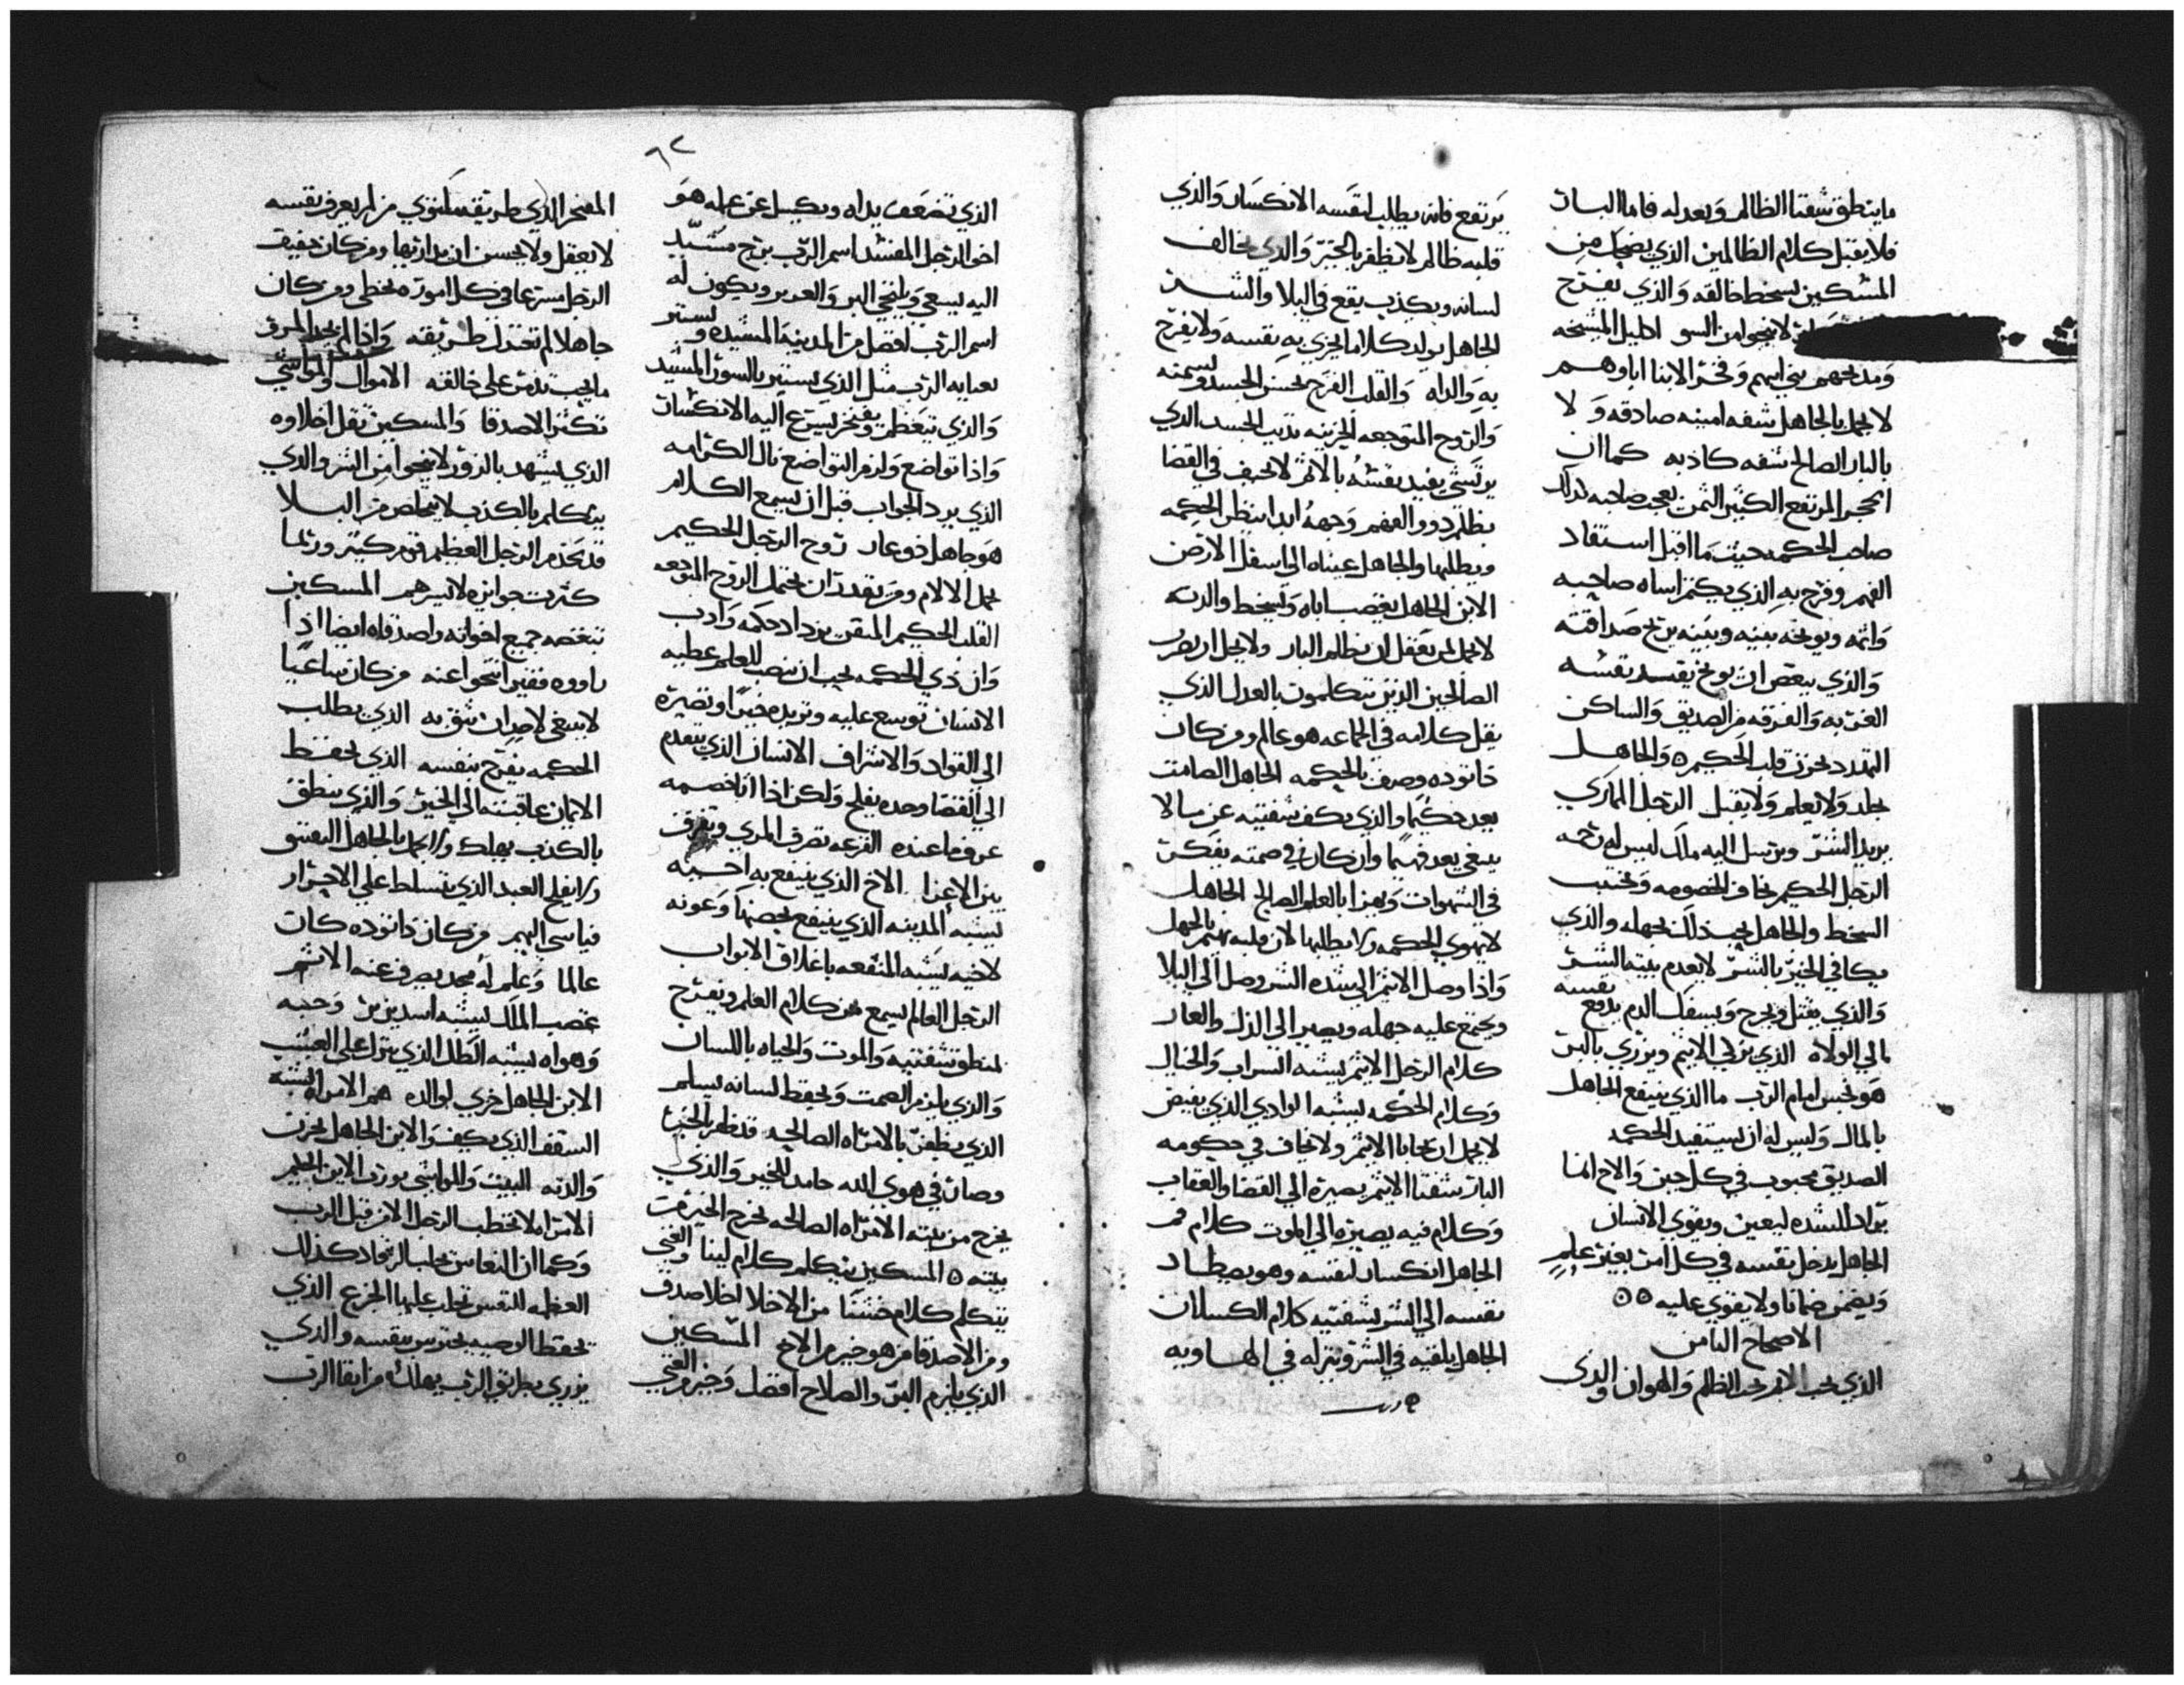 ما ينطق شفتا الظالم ويعدله فاما البار
فلا يقبل كلام الظالمين الذي يضحك من
المسكين يسخط خالقه والذي يفرح
لا ينجوا من السو اكليل المشيخه
ومديحهم بني ابيهم وفخر الابنا اباوهم
لا يجمل بالجاهل شفه امينه صادقه ولا
بالبار الصالح شفه كاذبه كما ان
الحجر المرتفع الكثير الثمن يعجب صاحبه كذلك
صاحب الحكمه حيث ما اقبل استفاد
الفهم وفرح به الذي يكتم اساه صاحبه
واثمه ويوبخه بينه وبينه يربح صداقته
والذي يبغض ان يوبخ يفسد نفسه
الغربه والفرقه من الصديق والساكن
التهدد يحزن قلب الحكيم ٥ والجاهل
يجلد ولا يعلم ولا يقبل الرجل المماري
يريد الشر ويرسل اليه ملاك ليس له رحمه
الرجل الحكيم يخاف الخصومه ويجتنب
السخط والجاهل يحب ذلك بجهله والذي
يكافي الخير بالشر لا يعدم بيته الشر
نفسه
والذي يقتل ويجرح ويسفك الدم يدفع
الي الولاه الذي يزكي الاثيم ويزري بالبر
هو نجس امام الرب ما الذي ينفع الجاهل
بالمال وليس له ان يستفيد الحكمه
الصديق محبوب في كل حين والاخ انما
يولد للشده ليعين ويقوي الانسان
الجاهل يدخل نفسه في كل امر بغير علم
ويضمن ضمانا ولا يقوي عليه ٥٥
الاصحاح الثامن
الذي يحب الاثم يحب الظلم والهوان والذي
يرتفع فانه يطلب لنفسه الانكسار والذي
قلبه ظالم لا يظفر بالخير والذي يخالف
لسانه ويكذب يقع في البلا والشر
الجاهل يولد كلاما يخزي به نفسه ولا يفرح
به والداه والقلب الفرح يحسن الجسد ويسمنه
والروح المتوجعه الحزينه تذيب الجسد الذي
يرتشي يفيد نفسه بالاثم لا يحيف في القضا
بظلم ذوو الفهم وجهه ابدا ينظر الحكمه
ويطلبها والجاهل عيناه الي اسفل الارض
الابن الجاهل يغضب اباه ويسخط والدته
لا يجمل لمن يعقل ان يظلم البار ولا يحل ان يضر
الصالحين الذين يتكلمون بالعدل الذي
يقل كلامه في الجماعه هو عالم ومن كان
ذا توده وصف بالحكمه الجاهل الصامت
يعد حكيما والذي يكف شفتيه عن ما لا
ينبغي يعد فهيما وان كان في صمته يفكر
في الشهوات ويهزا بالعلم الصالح الجاهل
لا يهوي الحكمه ولا يطلبها لان قلبه يهتم بالجهل
واذا وصل الاثيم الي شده الشر وصل الي البلا
ويجتمع عليه جهله ويصير الي الذل والعار
كلام الرجل الاثيم يشبه السراب والخيال
وكلام الحكمه يشبه الوادي الذي يفيض
لا يجمل ان تحابا الاثيم ولا تحاف في حكومه
البار شفتا الاثيم يصيره الي القضا والعقاب
وكلام فيه يصيره الي الموت كلام فم
الجاهل انكسار لنفسه وهو يصطاد
نفسه الي الشر بشفتيه كلام الكسلان
الجاهل يلقيه في الشر وينزله في الهاويه
٩٢
الذي تضعف يداه ويكسل عن عمله هو
اخو الرجل المفسد اسم الرب برج مشيد
اليه يسعي ويلتجي البر والعديم ويكون له
اسم الرب افضل من المدينه المشيده ويستتر
بعنايه الرب مثل الذي يستتر بالسور المشيد
والذي يتعظم ويفخر يسرع اليه الانكسار
واذا تواضع ولزم التواضع نال الكرامه
الذي يرد الجواب قبل ان يسمع الكلام
هو جاهل ذو عار روح الرجل الحكيم
تحمل الالام ومن يقدر ان يحتمل الروح المتوجعه
القلب الحكيم المتقن يزداد حكمه وادب
وان ذي الحكمه يجب ان ينصت للعلم عطيه
الانسان توسع عليه وتزيده خيرا وتصيره
الي القواد والاشراف الانسان الذي يتقدم
الي القضا وحده يفلح ولكن اذا اتا خصمه
عرف ما عنده القرعه تصرف المري وتفرق
بين الاعزا الاخ الذي ينتفع به اخيه
يشبه المدينه الذي ينتفع بحصنها وعونه
لاخيه يشبه المنفعه باغلاق الابواب
الرجل العالم يسمع من كلام العلم ويفرح
لمنطق شفتيه والموت والحياه باللسان
والذي يلزم الصمت ويحفظ لسانه يسلم
الذي يظفر بالامراه الصالحه قد ظفر بالخير
وصار في هوي الله حامد للخير والذي
يخرج من بيته الامراه الصالحه يخرج الخير من
بيته ٥ المسكين يتكلم كلام لينا والغني
يتكلم كلام خشنا من الاخلا اخلا صدق
ومن الاصدقا من هو خير من الاخ المسكين
الذي يلزم البر والصلاح افضل وخير من الغني
المفتخر الذي طريقه ملتوي من لم يعرف نفسه
لا يعقل ولا يحسن ان يداريها ومن كان خفيف
الرجل مسرعا في كل اموره يخطي ومن كان
جاهلا لم تعتدل طريقه واذا لم يجد المرو
ما يحب تذمر علي خالقه الاموال والمواشي
تكثر الاصدقا والمسكين تقل اخلاوه
الذي يشهد بالزور لا ينجوا من الشر والذي
يتكلم بالكذب لا يتخلص من البلا
قد يخدم الرجل العظيم قوم كثير وربما
كثرت جوايزه لاشرهم المسكين
تبغضه جميع اخوانه واصدقاه ايضا اذا
راووه فقير انتحوا عنه من كان ساعيا
لا ينبغي لاحد ان يثق به الذي يطلب
الحكمه يفرح بنفسه الذي يحفظ
الايمان عاقبته الي الخير والذي ينطق
بالكذب يهلك ولا يجمل بالجاهل التعتي
ولا يفلح العبد الذي يتسلط علي الاحرار
فيا سي اليهم من كان ذا توده كان
عالما وعلم له مجد يصرف عنه الاثم
غضب الملك يشبه اسد يزير وحبه
وهواه يشبه الطل الذي ينزل علي العشب
الابن الجاهل خزي لوالده هم الامراه يشبه
السقف الذي يكف والابن الجاهل يحزن
والدته البيت والمواشي يورث الابن الحليم
الامراه لا تخطب الرجل الا من قبل الرب
وكما ان النعاس يجلب الرقاد كذلك
العظمه للنفس تجلب عليها الجزع الذي
يحفظ الوصيه يحترس بنفسه والذي
يزري بطريق الرب يهلك من اتقا الرب